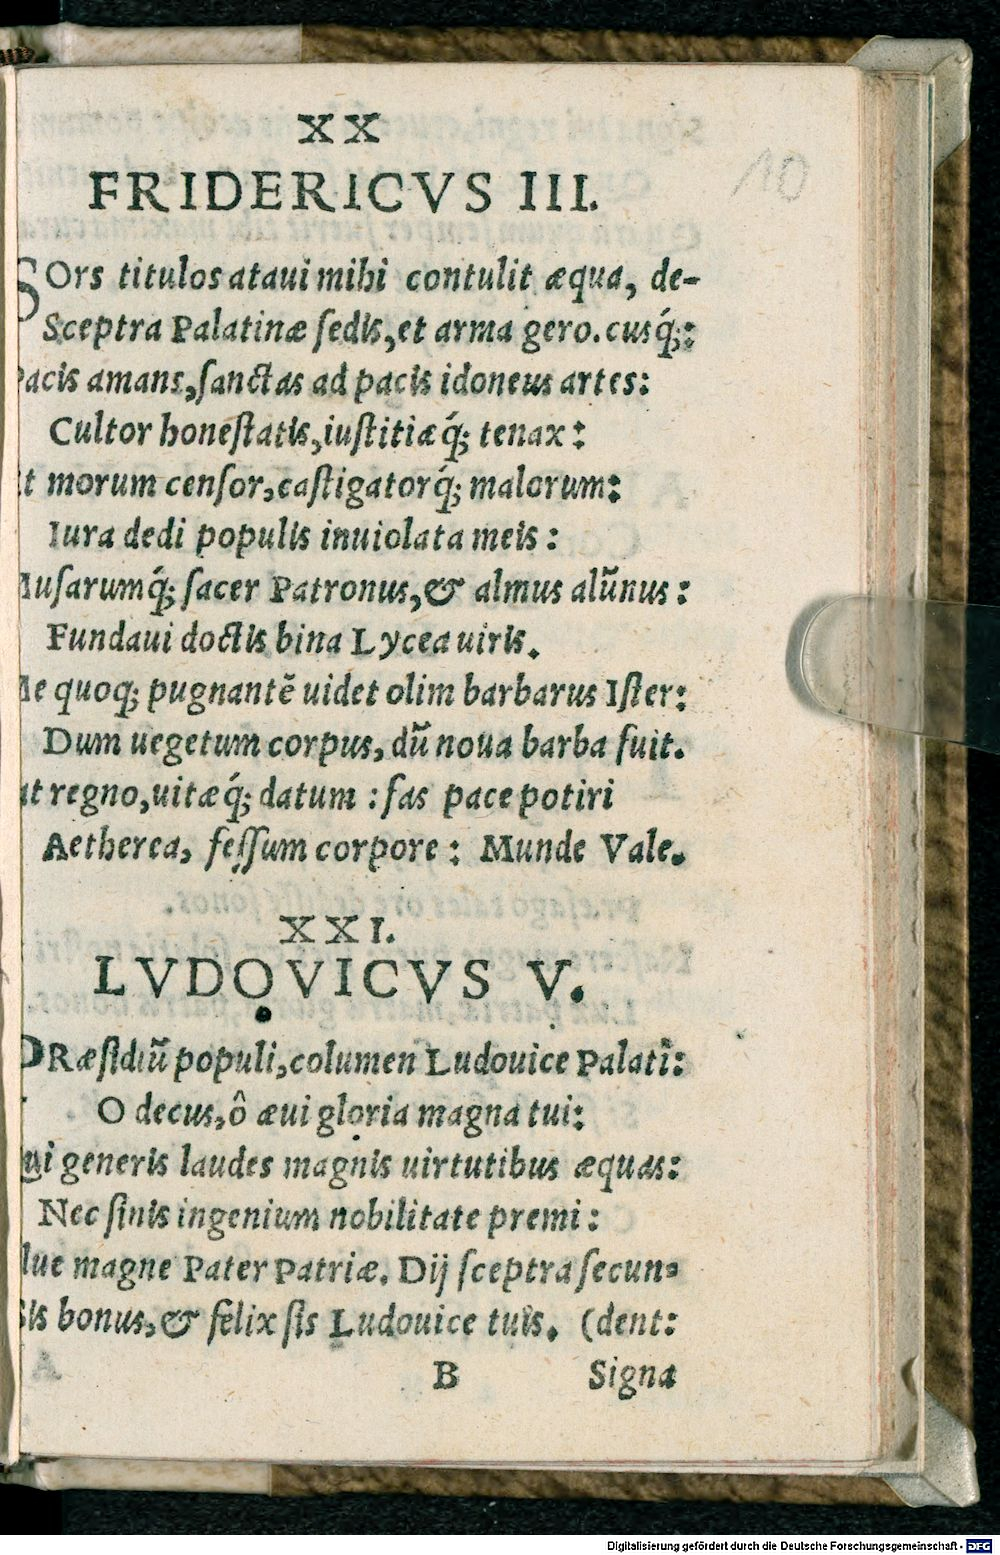 XX
10
FRIDERICVS III.
SOrs titulos ataui mihi contulit æqua, de-
Sceptra Palatinæ ſedis, et arma gero. cusq́;:
Pacis amans, ſanctas ad pacis idoneus artes:
Cultor honeſtatis, iuſtitiæq́; tenax:
Et morum cenſor, caſtigatorq́; malorum:
Iura dedi populis inuiolata meis:
Muſarumq́; ſacer Patronus, & almus alūnus:
Fundaui doctis bina Lycea uiris.
Me quoq; pugnantē uidet olim barbarus Iſter:
Dum uegetum corpus, dū noua barba fuit.
at regno, uitæq́; datum: fas pace potiri
Aetherea, feſſum corpore: Munde Vale.
XXI.
LVDOVICVS V.
PRæſidiū populi, columen Ludouice Palatī:
O decus, ô æui gloria magna tui:
Qui generis laudes magnis uirtutibus æquas:
Nec ſinis ingenium nobilitate premi:
lue magne Pater Patriæ. Dij ſceptra ſecun-
Sis bonus, & felix ſis Ludouice tuis. (dent:
B Signa
Digitalisierung gefördert durch die Deutsche Forschungsgemeinschaft - DFG